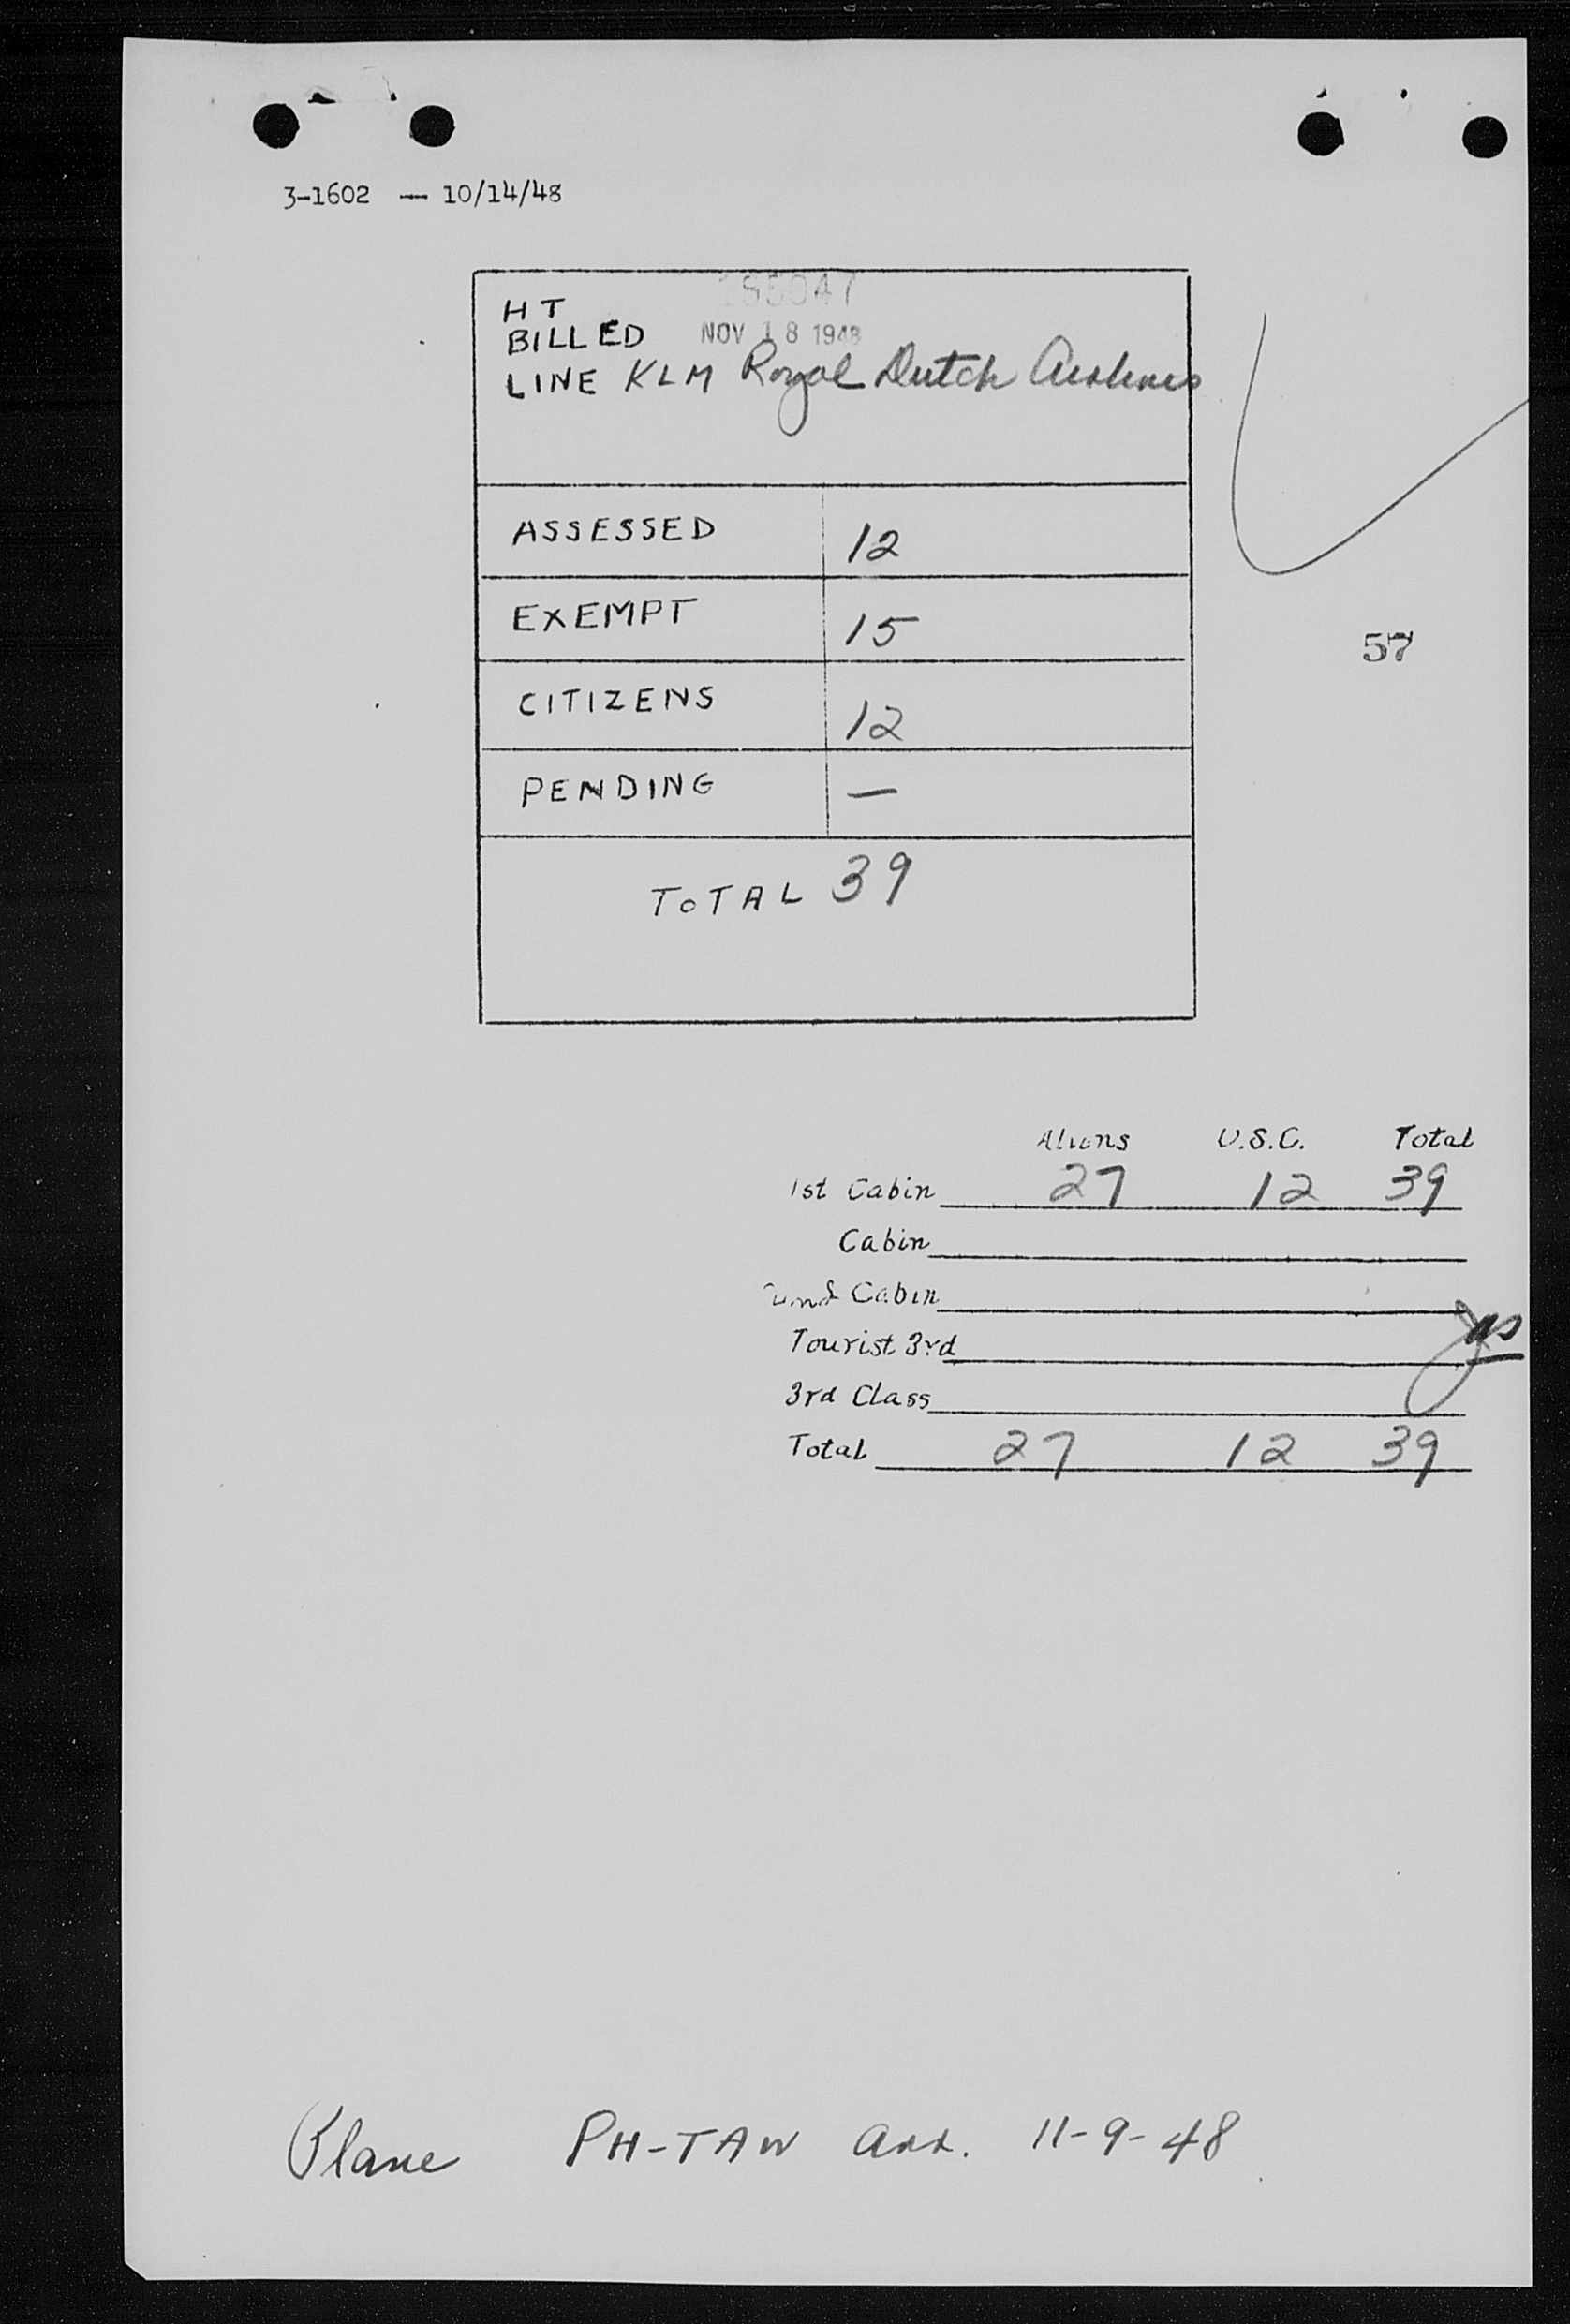 3-1602 — 10/14/48
HT
BILLED NOV 18 1948
LINE KLM Royal Dutch Airlines
ASSESSED 12
EXEMPT 15
57
CITIZENS 12
PENDING —
TOTAL 39
Aliens U.S.C. Total
1st Cabin 27 12 39
Cabin
Cabin
Tourist 3rd
3rd Class
Total 27 12 39
Plane PH-TAW arr. 11-9-48